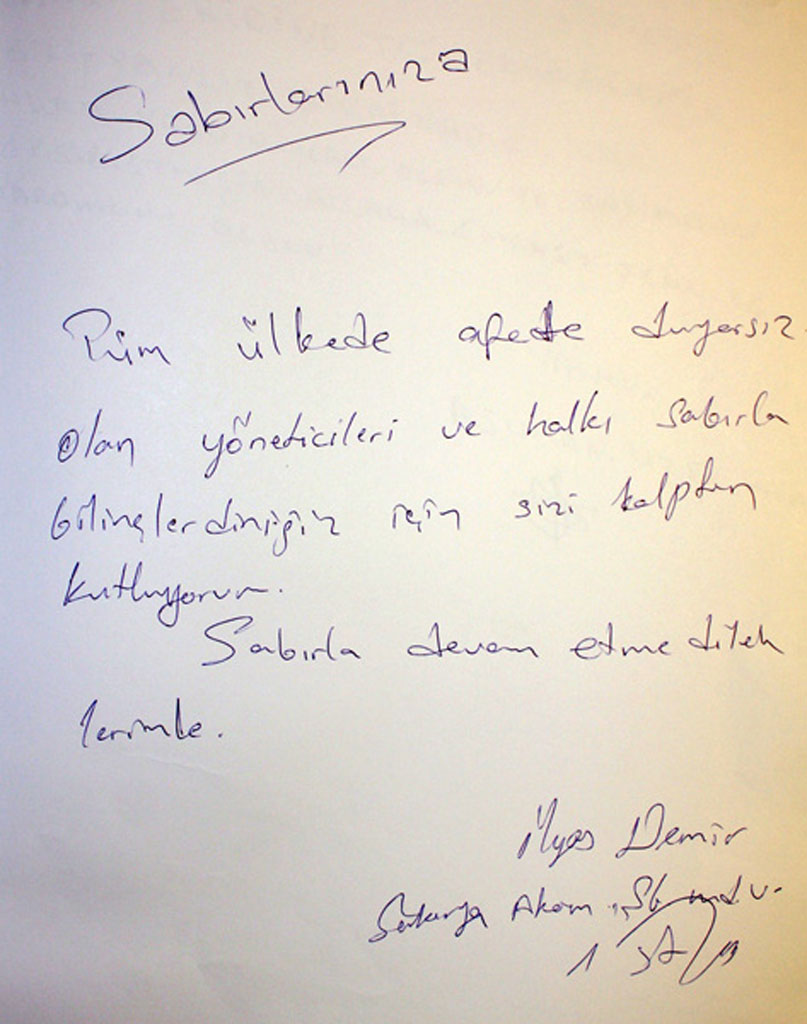 Sabırlarınıza
Tüm ülkede afete duyarsız
olan yöneticileri ve halkı sabırla
bilinçlerdiniğiz için sizi kalpten
kutluyorum.
Sabırla devam etme dilek
lerimle.
İlyas Demir
Sakarya Akom